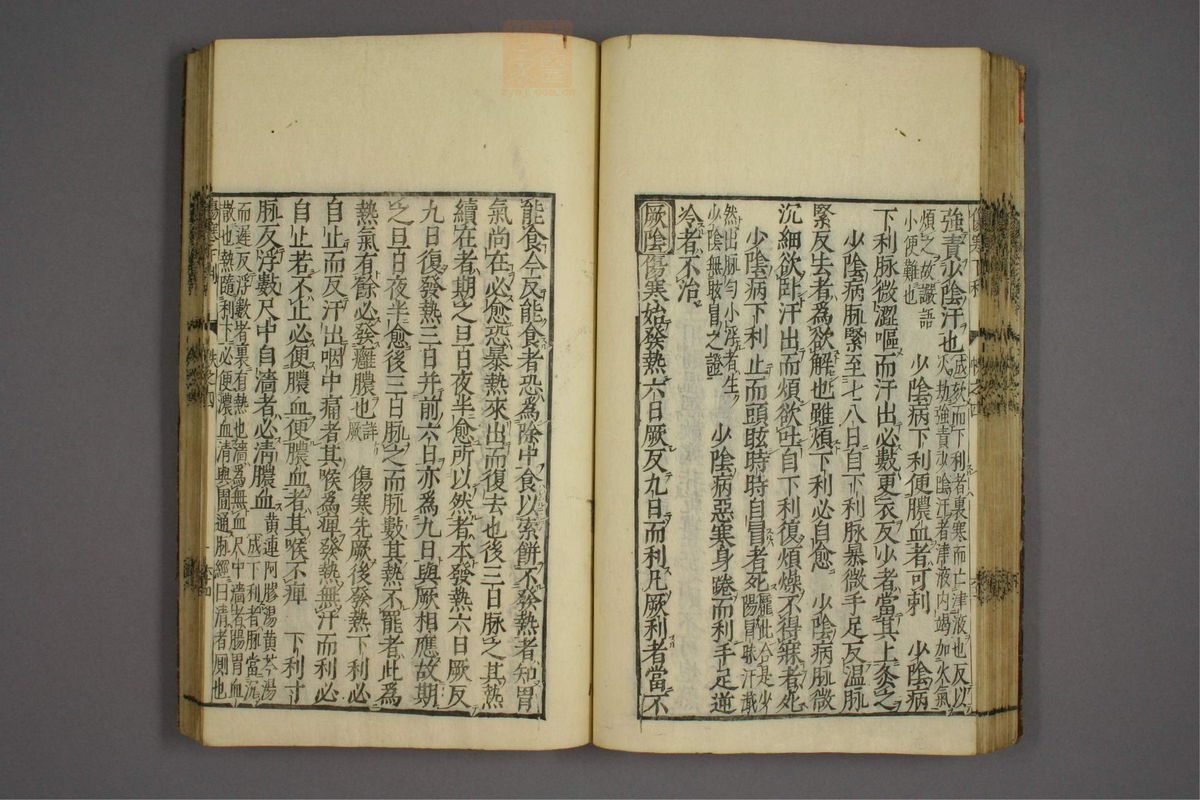 強責少陰汗也成欬而下利者裏寒而亡津液也反以火劫強責少陰汗者津液内竭加火氣
煩之故讝語小便難也　少陰病下利便膿血者可刺　少陰病
下利脉微澀嘔而汗出必數更衣反少者當其上灸之
少陰病脉緊至七八日自下利脉暴微手足反温脉
緊反去者爲欲解也雖煩下利必自愈　少陰病脉微
沉細欲卧汗出而煩欲吐自下利復煩燥不得寐者死
少陰病下利止而頭眩時時自冒者死龐此合是少陽冒昧汗
然出脉勻小浮者生少陰無眩冒之證　少陰病惡寒身踡而利手足逆
冷者不治
厥陰傷寒始發熱六日厥反九日而利凡厥利者當不
能食今反能食者恐爲除中食以索餅不發熱者知胃
氣尚在必愈恐暴熱來出而復去也後三日脉之其熱
續在者期之旦日夜半愈所以然者本發熱六日厥反
九日復發熱三日并前六日亦爲九日與厥相應故期
之旦日夜半愈後三日脉之而脉數其熱不罷者此爲
熱氣有餘必發癰膿也詳厥　傷寒先厥後發熱下利必
自止而反汗出咽中痛者其喉爲痺發熱無汗而利必
自止若不止必便膿血便膿血者其喉不痺　下利寸
脉反浮數尺中自濇者必清膿血黄連阿膠湯黄芩湯成下利者脉當沉
而遲反浮數者裏有熱也濇爲無血尺中濇者腸胃血
散也熱隨利下必便濃血清與圊通脉經曰清者厠也